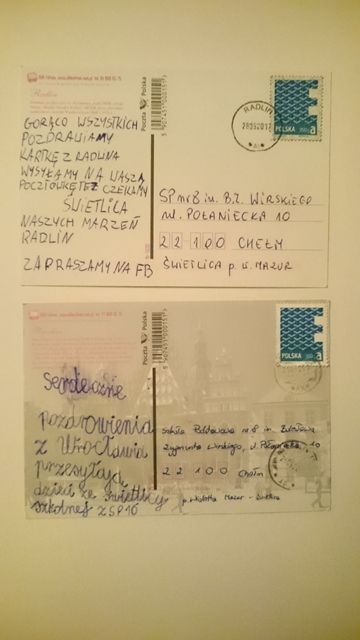 Radlin
GORĄCO WSZYSTKICH
POZDRAWIAMY
KARTKĘ Z RADLINA
WYSYŁAMY NA WASZĄ
POCZTÓWKĘ TEŻ CZEKAMY
ŚWIETLICA
NASZYCH MARZEŃ
RADLIN
ZAPRASZAMY NA FB
Poczta Polska
RADLIN
POLSKA
a
SP nr 8 im. B.Z. WIRSKIEGO
ul. POŁANIECKA 10
22 100 CHEŁM
ŚWIETLICA p. W. MAZUR
Serdecznie
pozdrowienia
z Wrocławia
przesyłają
dzieci ze świetlicy
szkolnej ZSP10
Poczta Polska
POLSKA
a
Szkoła Podstawowa nr 8 im.
Zygmunta Wirskiego, ul. Połaniecka 10
22 100 Chełm
p. Wioletta Mazur -